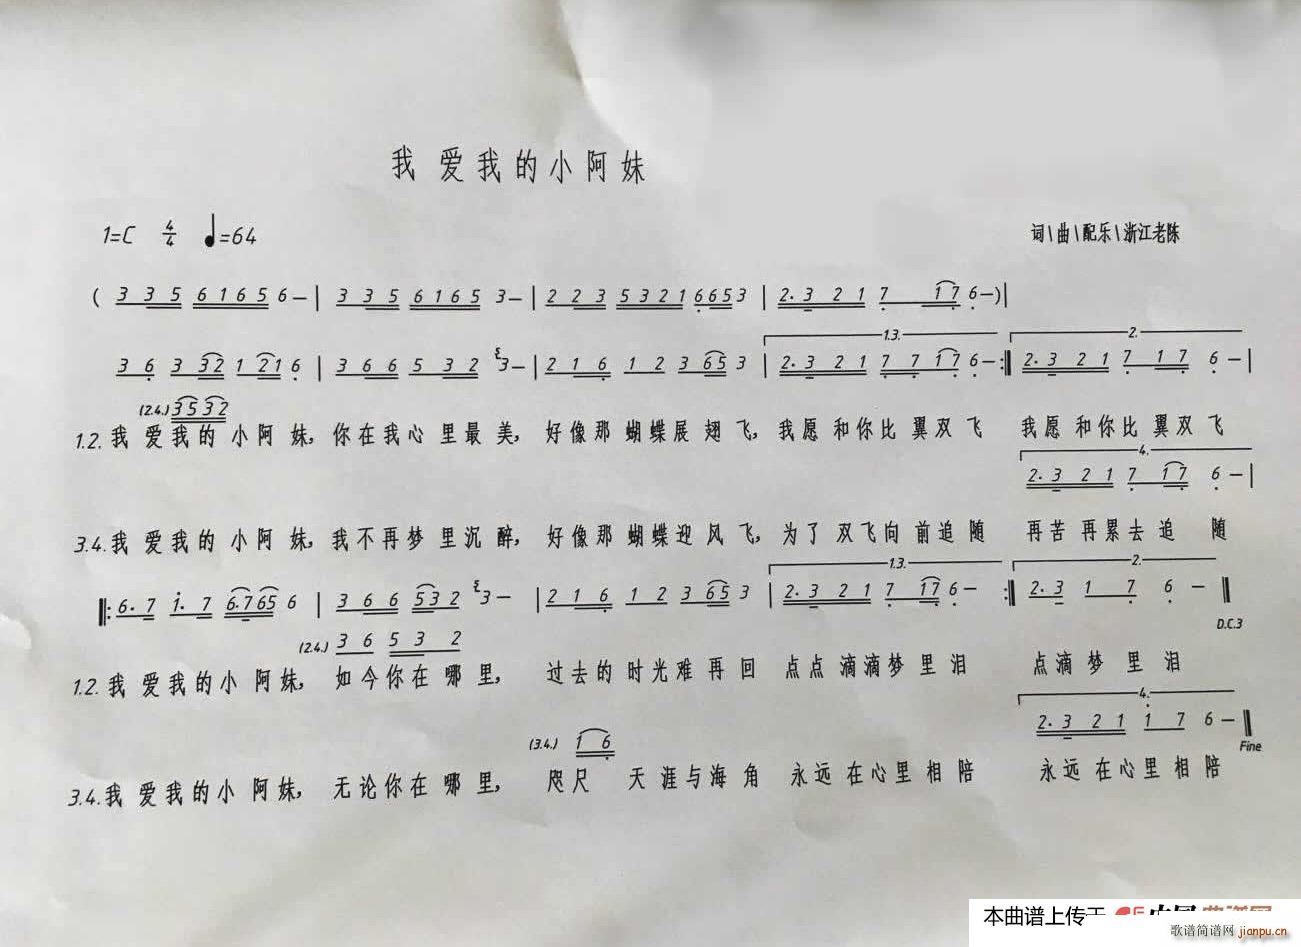 我爱我的小阿妹
1=C 4/4 ♩=64
词\曲\配乐\浙江老陈
( 3 3 5 6 1 6 5 6 – | 3 3 5 6 1 6 5 3 – | 2 2 3 5 3 2 1 6 6 5 3 | 2. 3 2 1 7 1 7 6 – ) |
1.3. 2.
3 6 3 3 2 1 2 1 6 | 3 6 6 5 3 2 3 – | 2 1 6 1 2 3 6 5 3 | 2. 3 2 1 7 7 1 7 6 – :‖ 2. 3 2 1 7 1 7 6 – |
(2.4.) 3 5 3 2
1.2. 我爱我的小阿妹, 你在我心里最美, 好像那蝴蝶展翅飞, 我愿和你比翼双飞 我愿和你比翼双飞
4.
2. 3 2 1 7 1 7 6 – |
3.4. 我爱我的小阿妹, 我不再梦里沉醉, 好像那蝴蝶迎风飞, 为了双飞向前追随 再苦再累去追随
1.3. 2.
‖: 6. 7 1. 7 6. 7 6 5 6 | 3 6 6 5 3 2 3 – | 2 1 6 1 2 3 6 5 3 | 2. 3 2 1 7 1 7 6 – :‖ 2. 3 1 7 6 – ‖
D.C.3
(2.4.) 3 6 5 3 2
1.2. 我爱我的小阿妹, 如今你在哪里, 过去的时光难再回 点点滴滴梦里泪 点滴梦里泪
4.
2. 3 2 1 1 7 6 – ‖
Fine
(3.4.) 1 6
3.4. 我爱我的小阿妹, 无论你在哪里, 咫尺天涯与海角 永远在心里相陪 永远在心里相陪
本曲谱上传于
歌谱简谱网
jianpu.cn